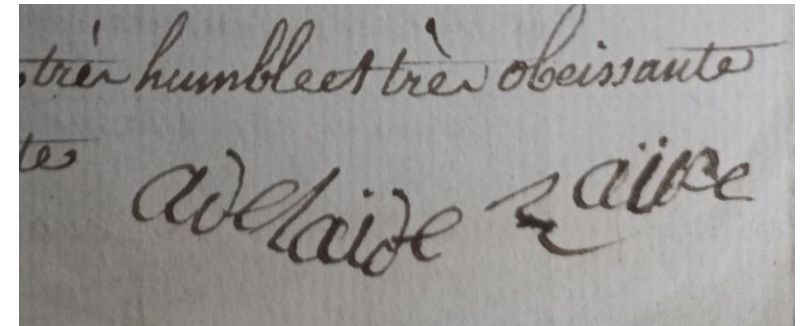 très humble et très obeissante
te
adelaide zaïre